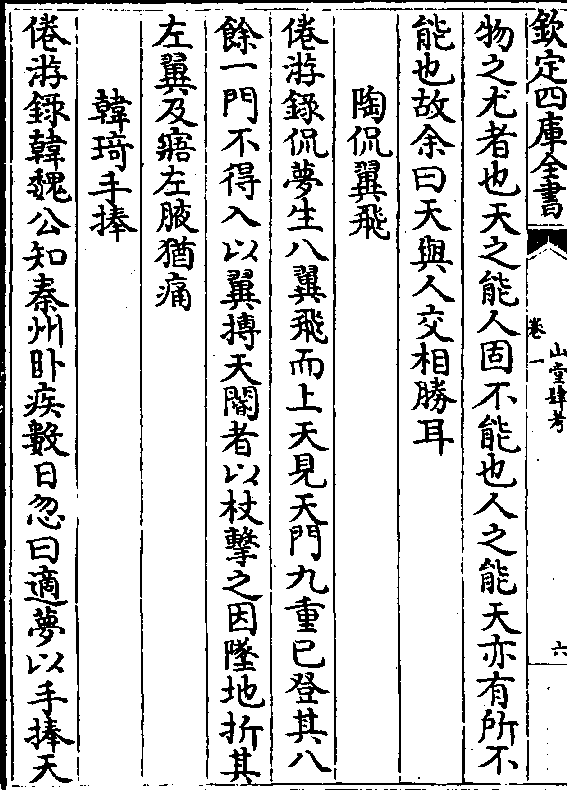 欽定四庫全書
卷一
山堂肆考
六
物之尤者也天之能人固不能也人之能天亦有所不
能也故余曰天與人交相勝耳
陶侃翼飛
倦游錄侃夢生八翼飛而上天見天門九重已登其八
餘一門不得入以翼摶天閽者以杖擊之因墜地折其
左翼及寤左腋猶痛
韓琦手捧
倦游錄韓魏公知秦州卧疾數日忽曰適夢以手捧天